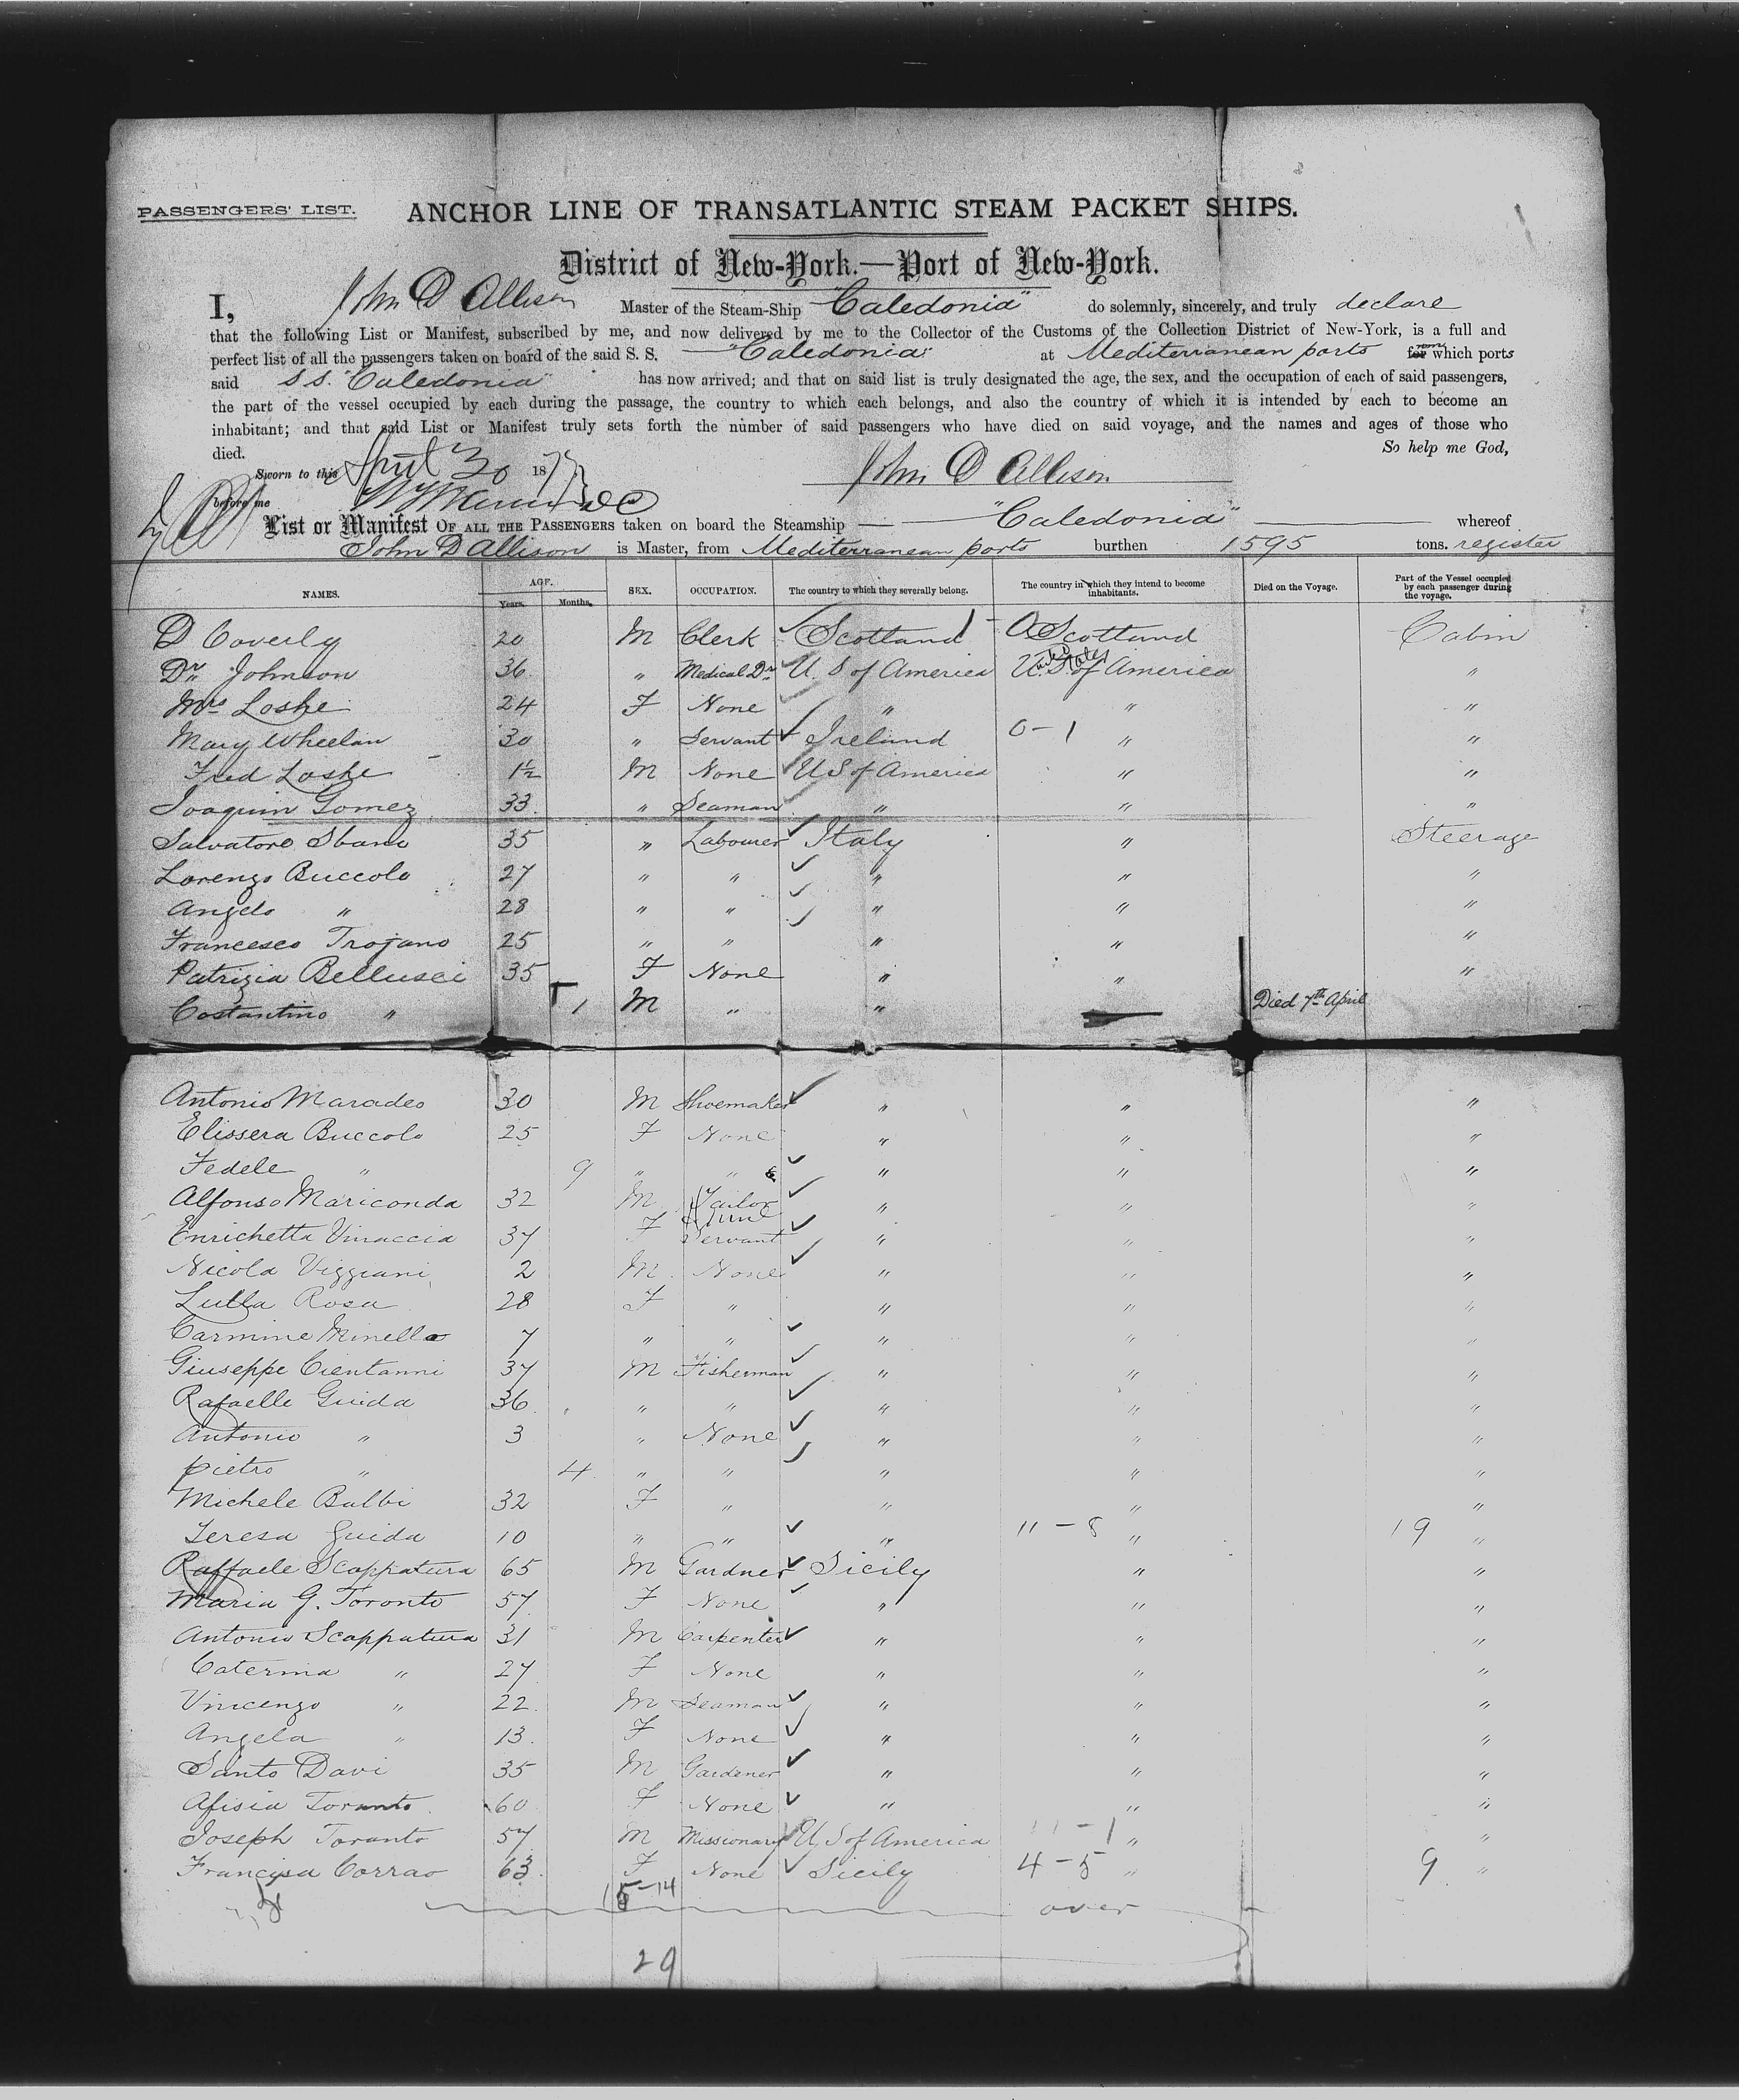 PASSENGERS' LIST. ANCHOR LINE OF TRANSATLANTIC STEAM PACKET SHIPS.
District of New-York.—Port of New-York.
I, John D Allison Master of the Steam-Ship "Caledonia" do solemnly, sincerely, and truly declare
that the following List or Manifest, subscribed by me, and now delivered by me to the Collector of the Customs of the Collection District of New-York, is a full and
perfect list of all the passengers taken on board of the said S. S. "Caledonia" at Mediterranean ports from which ports
said S.S. "Caledonia" has now arrived; and that on said list is truly designated the age, the sex, and the occupation of each of said passengers,
the part of the vessel occupied by each during the passage, the country to which each belongs, and also the country of which it is intended by each to become an
inhabitant; and that said List or Manifest truly sets forth the number of said passengers who have died on said voyage, and the names and ages of those who
died. So help me God,
Sworn to this April 30 1877 John D Allison
before me
List or Manifest OF ALL THE PASSENGERS taken on board the Steamship "Caledonia" whereof
John D Allison is Master, from Mediterranean ports burthen 1595 tons. register
NAMES. AGE. Years. Months. SEX. OCCUPATION. The country to which they severally belong. The country in which they intend to become inhabitants. Died on the Voyage. Part of the Vessel occupied by each passenger during the voyage.
D Coverly 20 M Clerk Scotland Scotland Cabin
Dr Johnson 36 " Medical Dr U. S of America United States of America "
Mrs Loshe 24 F None " " "
Mary Wheelan 30 " Servant Ireland 0-1 " "
Fred Loshe 1½ M None U S of America " "
Joaquin Gomez 33 " Seaman " " "
Salvatore Sbano 35 " Labourer Italy " Steerage
Lorenzo Buccolo 27 " " " " "
Angelo " 28 " " " " "
Francesco Trojano 25 " " " " "
Patrizia Bellusci 35 F None " " "
Costantino " 1 M " " Died 7th April
Antonio Maradeo 30 M Shoemaker " " "
Elissera Buccolo 25 F None " " "
Fedele " 9 " " " " "
Alfonso Mariconda 32 M Tailor " " "
Enrichetta Vinaccia 37 F Servant " " "
Nicola Viggiani 2 M None " " "
Lulla Rosa 28 F " " " "
Carmine Minella 7 " " " " "
Giuseppe Cientanni 37 M Fisherman " " "
Rafaelle Guida 36 " " " " "
Antonio " 3 " None " " "
Pietro " 4 " " " " "
Michele Balbi 32 F " " " "
Teresa Guida 10 " " " 11-8 " 19 "
Raffaele Scappatura 65 M Gardner Sicily " "
Maria G. Toronto 57 F None " " "
Antonio Scappatura 31 M Carpenter " " "
Caterina " 27 F None " " "
Vincenzo " 22 M Seaman " " "
Angela " 13 F None " " "
Santo Davi 35 M Gardener " " "
Afisia Toronto 60 F None " " "
Joseph Toronto 57 M Missionary U S of America 11-1 " "
Francisa Corrao 63 F None Sicily 4-5 " 9 "
15-14
over
29